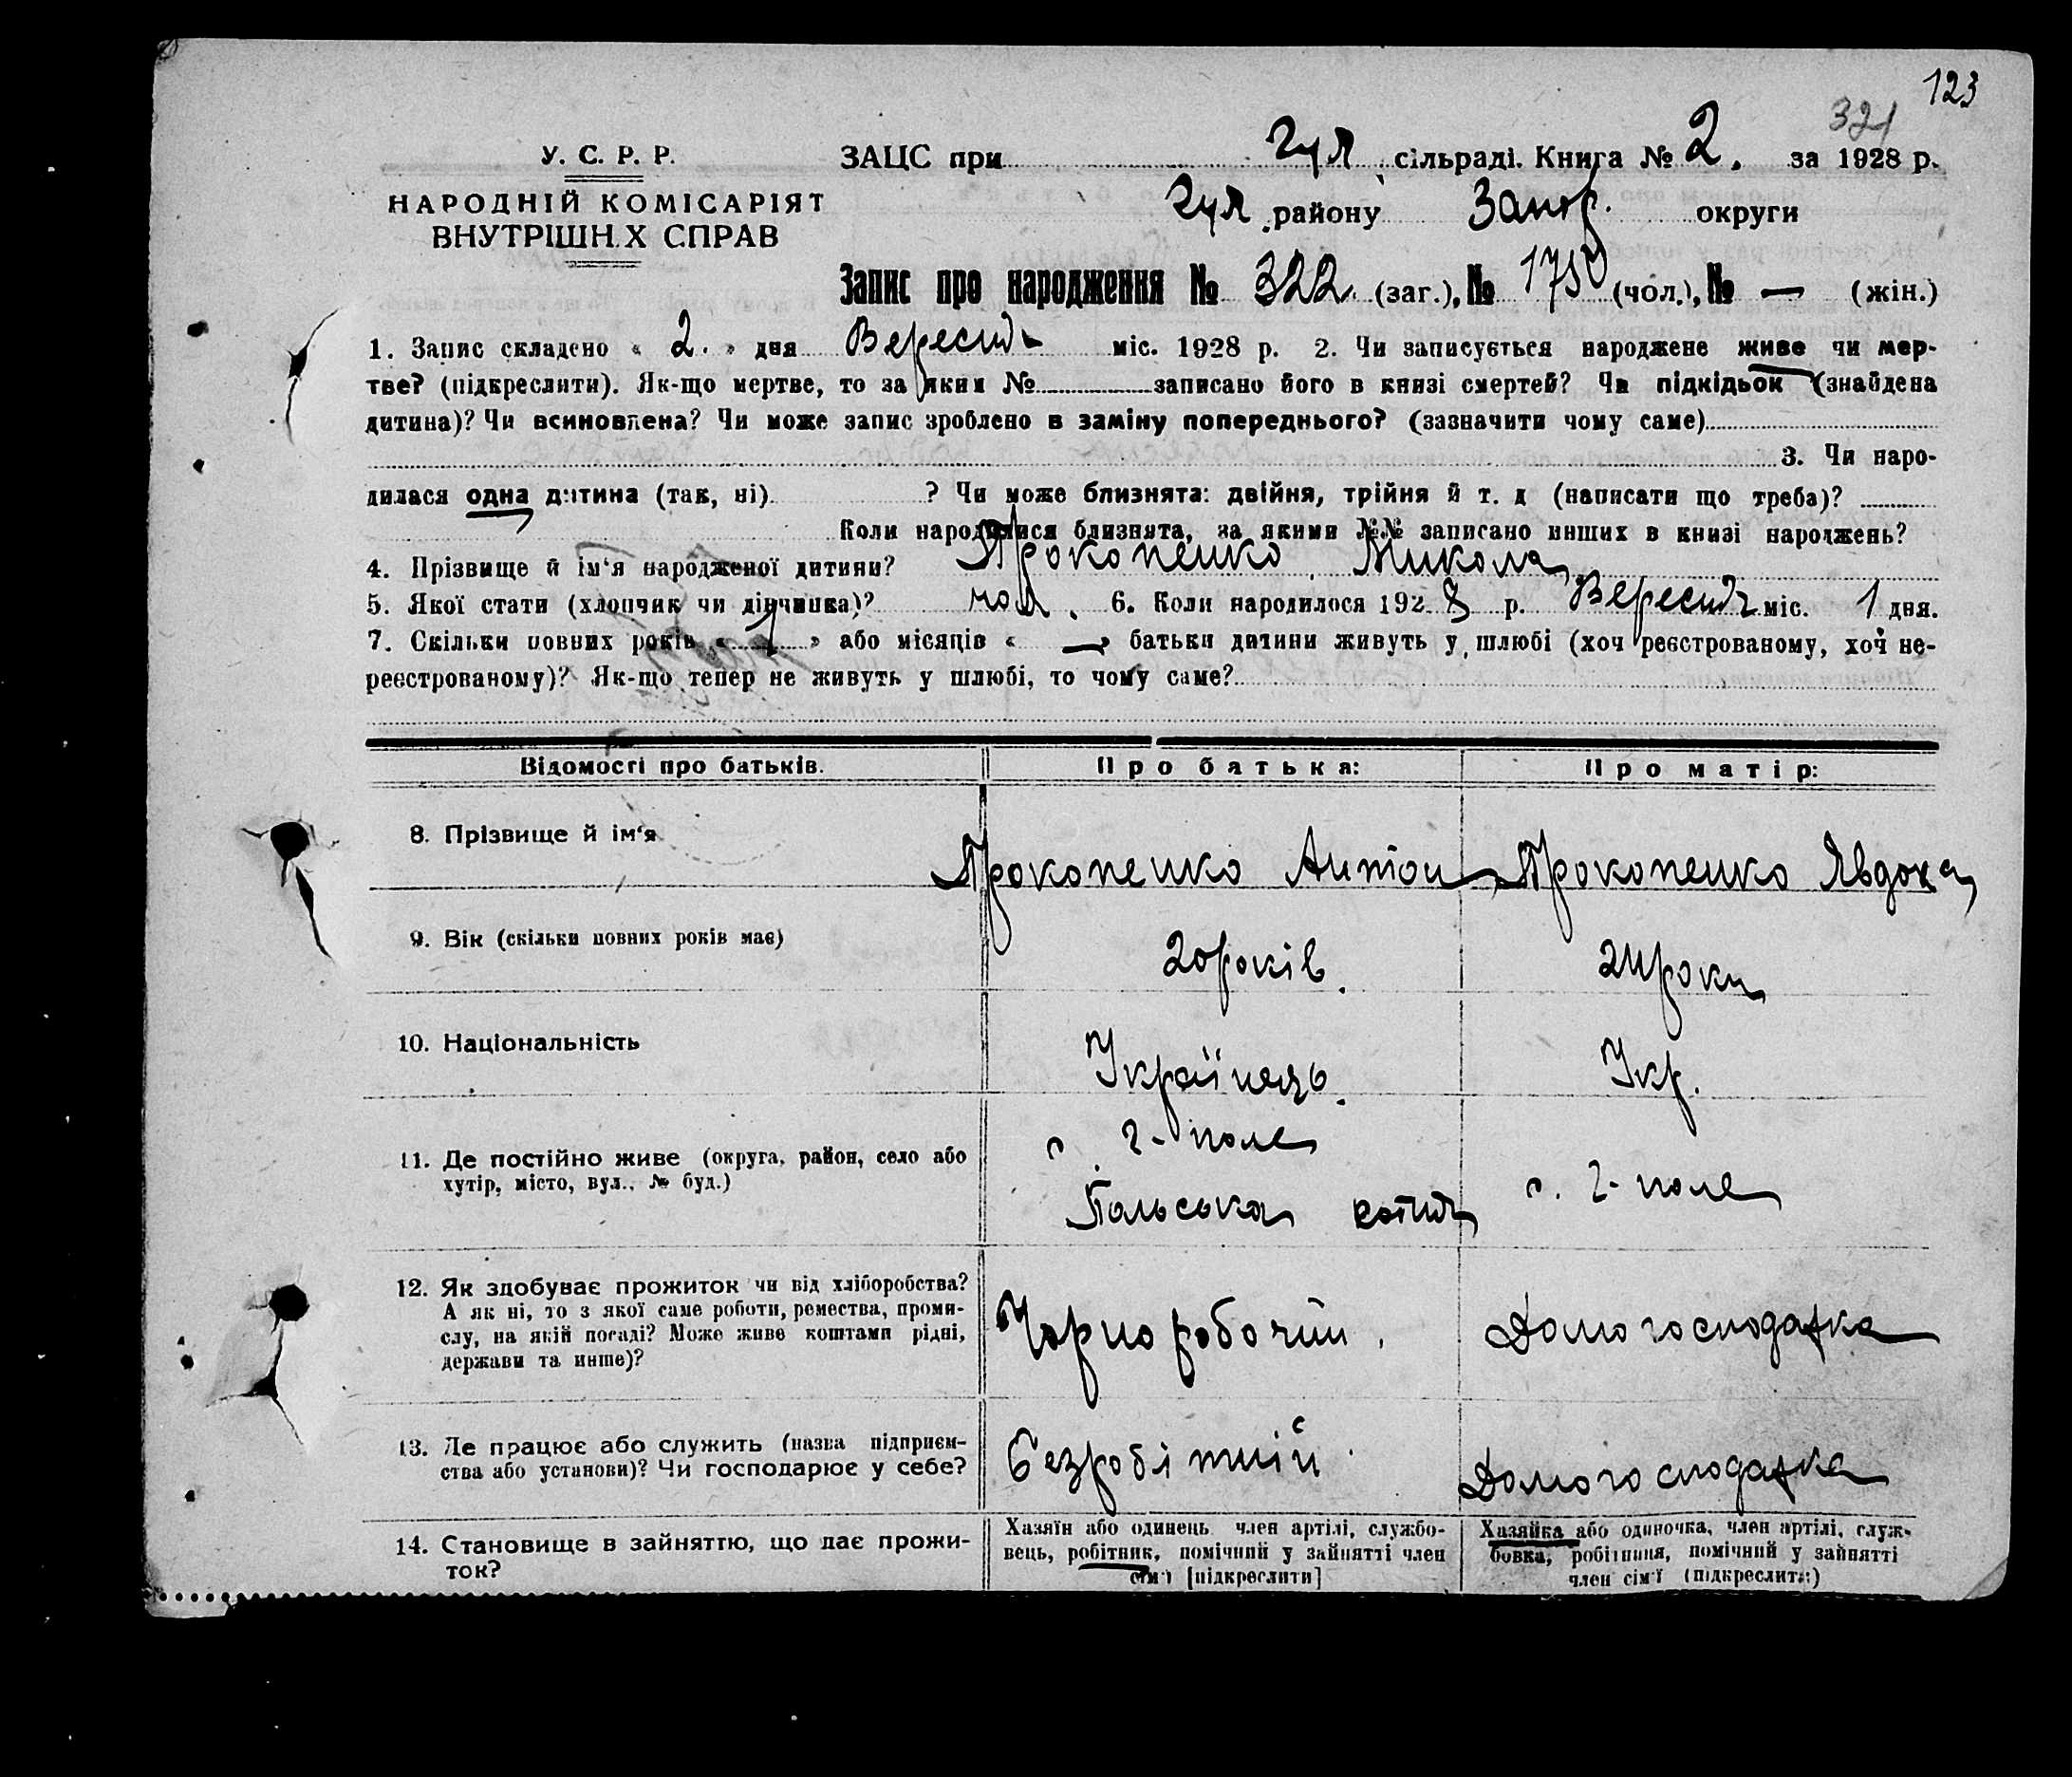 123
321
У. С. Р. Р.
ЗАЦС при Гул. сільраді. Книга № 2. за 1928 р.
НАРОДНІЙ КОМІСАРІЯТ
Гул. району Запор. округи
ВНУТРІШН.Х СПРАВ
Запис про народження № 322. (заг.), № 175 (чол.), № — (жін.)
1. Запис складено « 2. » дня Вересня міс. 1928 р. 2. Чи записується народжене живе чи мер-
тве? (підкреслити). Як-що мертве, то за яким № записано його в книзі смертей? Чи підкідьок (знайдена
дитина)? Чи всиновлена? Чи може запис зроблено в заміну попереднього? (зазначити чому саме)
3. Чи наро-
дилася одна дитина (так, ні). ? Чи може близнята: двійня, трійня й т. д (написати що треба)?
Коли народилися близнята, за якими №№ записано инших в книзі народжень?
4. Прізвище й ім‘я народженої дитини? Прокопенко Микола
5. Якої стати (хлопчик чи дівчинка)? чол. 6. Коли народилося 1928 р. Вересня міс. 1 дня.
7. Скільки повних років « 1 » або місяців « — » батьки дитини живуть у шлюбі (хоч реєстрованому, хоч не-
реєстрованому)? Як-що тепер не живуть у шлюбі, то чому саме?
Відомості про батьків. Про батька: Про матір:
8. Прізвище й ім‘я Прокопенко Антон Прокопенко Явдоха
9. Вік (скільки повних років має) 20 років. 21 роки
10. Національність Українець. Укр.
11. Де постійно живе (округа, район, село або
хутір, місто, вул., № буд.)
с. Г-поле
Польська сотня
с. Г-поле
12. Як здобуває прожиток чи від хліборобства?
А як ні, то з якої саме роботи, ремества, проми-
слу, на якій посаді? Може живе коштами рідні,
держави та инше)?
Чорноробочий.
Домогосподарка
13. Де працює або служить (назва підприєм-
ства або установи)? Чи господарює у себе?
Безробітний
Домогосподарка
14. Становище в зайняттю, що дає прожи-
ток?
Хазяїн або одинець член артілі, службо-
вець, робітник, помічний у зайнятті член
сім‘ї [підкреслити]
Хазяйка або одиночка, член артілі, служ-
бовка, робітниця, помічний у зайнятті
член сім‘ї (підкреслити)